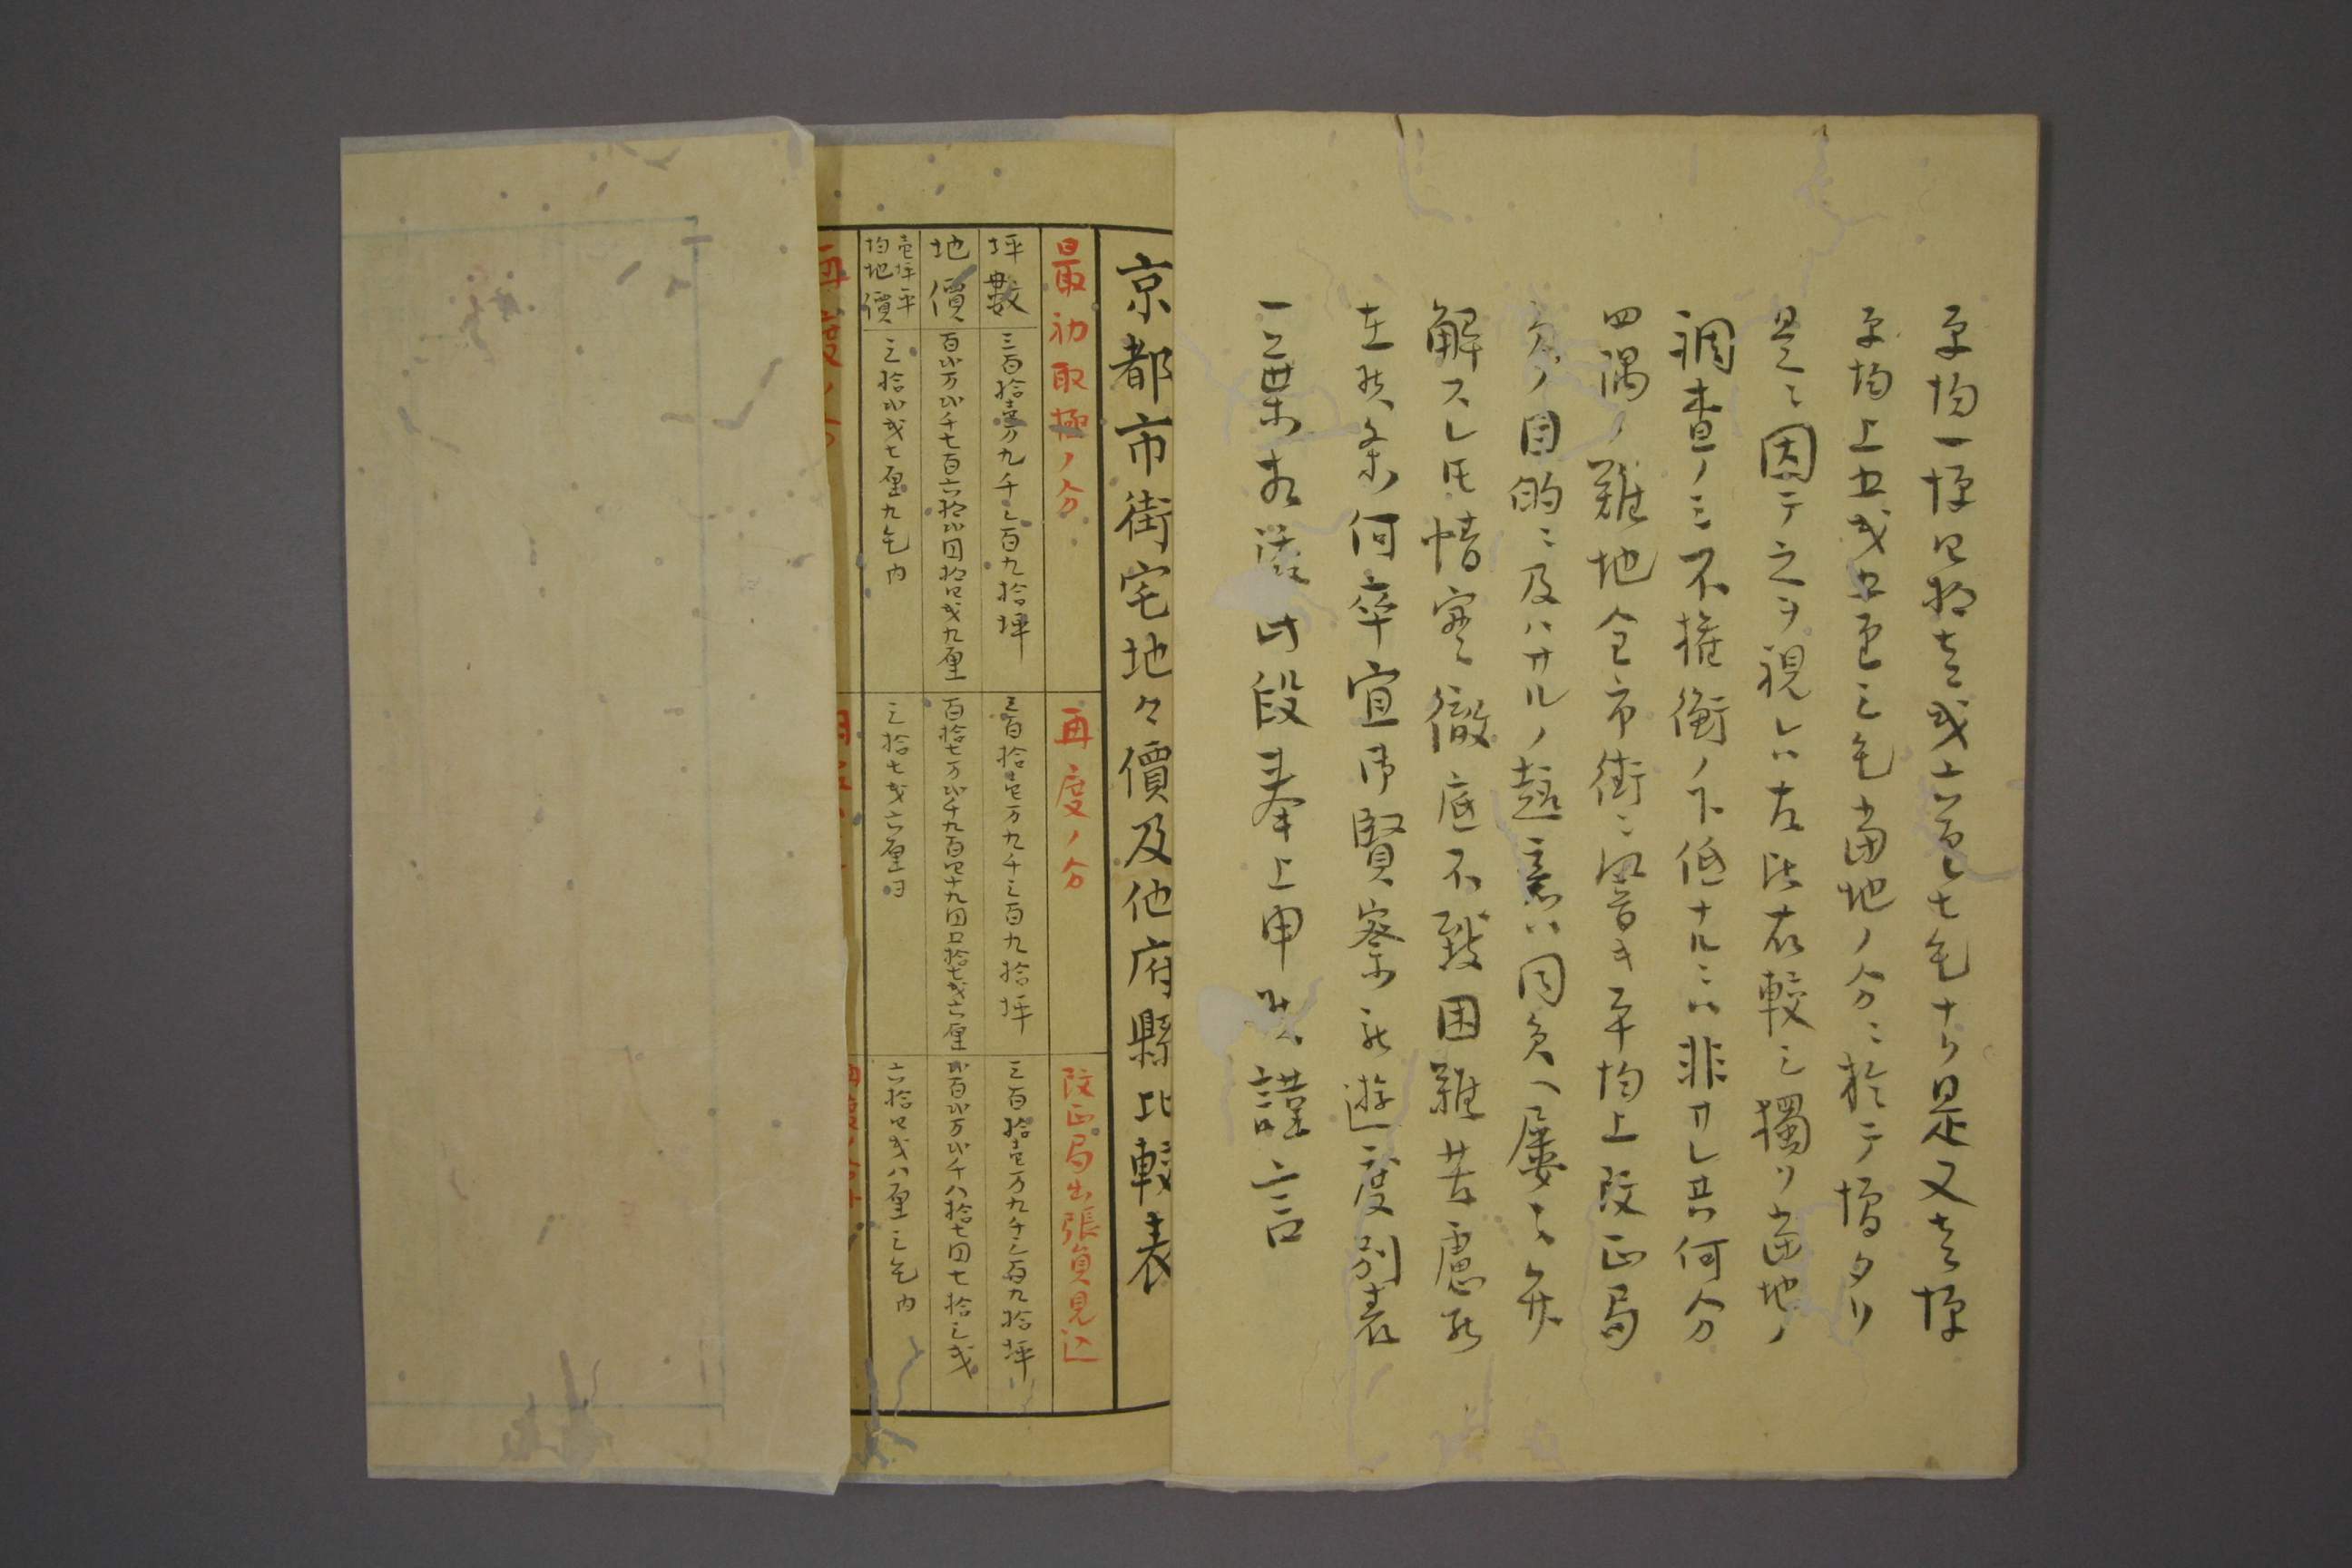 平均一坪四拾壱戔六厘七毛ナリ是又壱坪
平均上五戔五厘三毛当地ノ分ニ於テ増タリ
是ニ因テ之ヲ視レハ左比右較シ獨リ当地ノ
調査ノミ不権衡ノ下低ナルニハ非サレ共何分
四隅ノ難地全市街ニ響キ平均上改正局
員ノ目的ニ及ハサルノ趣意ハ同員ヘ屡々弁
解スレ𪜈情実徹底不致困難苦慮罷
在候条何卒宜御賢察被遊度別表
一葉相添此段奉上申候謹言
京都市街宅地々價及他府縣比較表
最初取極ノ分
再度ノ分
改正局出張員見込
坪數
三百拾壱万九千三百九拾坪
三百拾壱万九千三百九拾坪
三百拾壱万九千三百九拾坪
地價
百弐万弐千七百六拾弐円拾四戔九厘
百拾七万弐千九百四十九円四拾七戔六厘
弐百弐万弐千八拾七円七拾三戔
壱坪平均地價
三拾弐戔七厘九毛内
三拾七戔六厘ヨ
六拾四戔八厘三毛内
再度ノ分